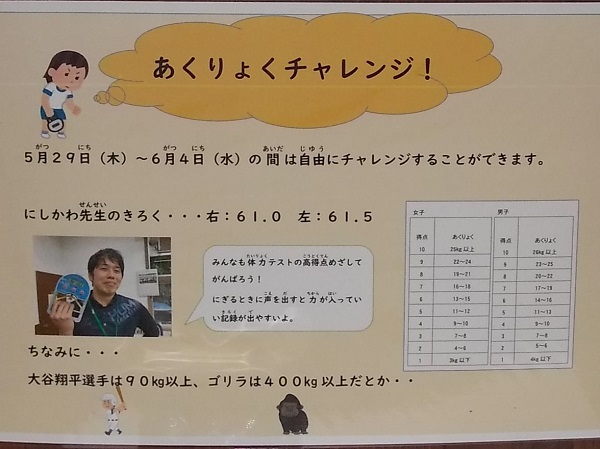 あくりょくチャレンジ！
5月29日（木）～6月4日（水）の間は自由にチャレンジすることができます。
にしかわ先生のきろく・・・右：61.0　左：61.5
みんなも体力テストの高得点めざして
がんばろう！
にぎるときに声を出すと力が入ってい
い記録が出やすいよ。
女子
得点 あくりょく
10 25kg以上
9 22～24
8 19～21
7 16～18
6 13～15
5 11～12
4 9～10
3 7～8
2 4～6
1 3kg以下
男子
得点 あくりょく
10 26kg以上
9 23～25
8 20～22
7 17～19
6 14～16
5 11～13
4 9～10
3 7～8
2 5～6
1 4kg以下
ちなみに・・・
大谷翔平選手は90kg以上、ゴリラは400kg以上だとか・・